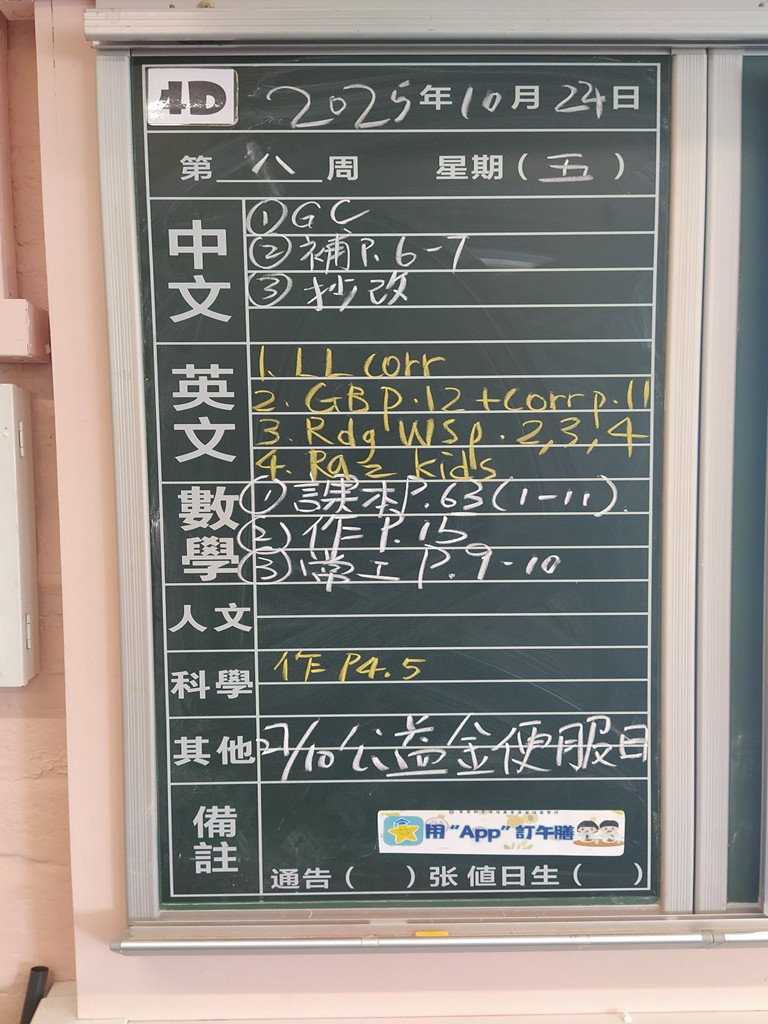 4D 2025年10月24日
第八周 星期(五)
中文
①GC
②補P.6-7
③抄改
英文
1. LL corr
2. GB p.12 + corr p.11
3. Rdg WS p.2,3,4
4. Raz kids
數學
①課本P.63(1-11)
②作P.15
③常工P.9-10
人文
科學
作 P4.5
其他
27/10公益金便服日
備註
用“App”訂午膳
通告( )张 值日生( )